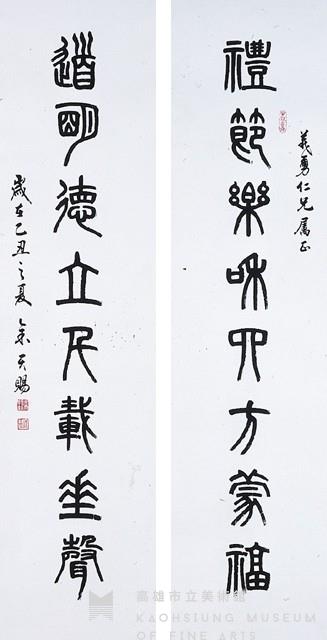 禮節樂和四方蒙福
義勇仁兄屬正
道明德立民載垂聲
歲在乙丑之夏 余天賜
高雄市立美術館
KAOHSIUNG MUSEUM
OF FINE ARTS